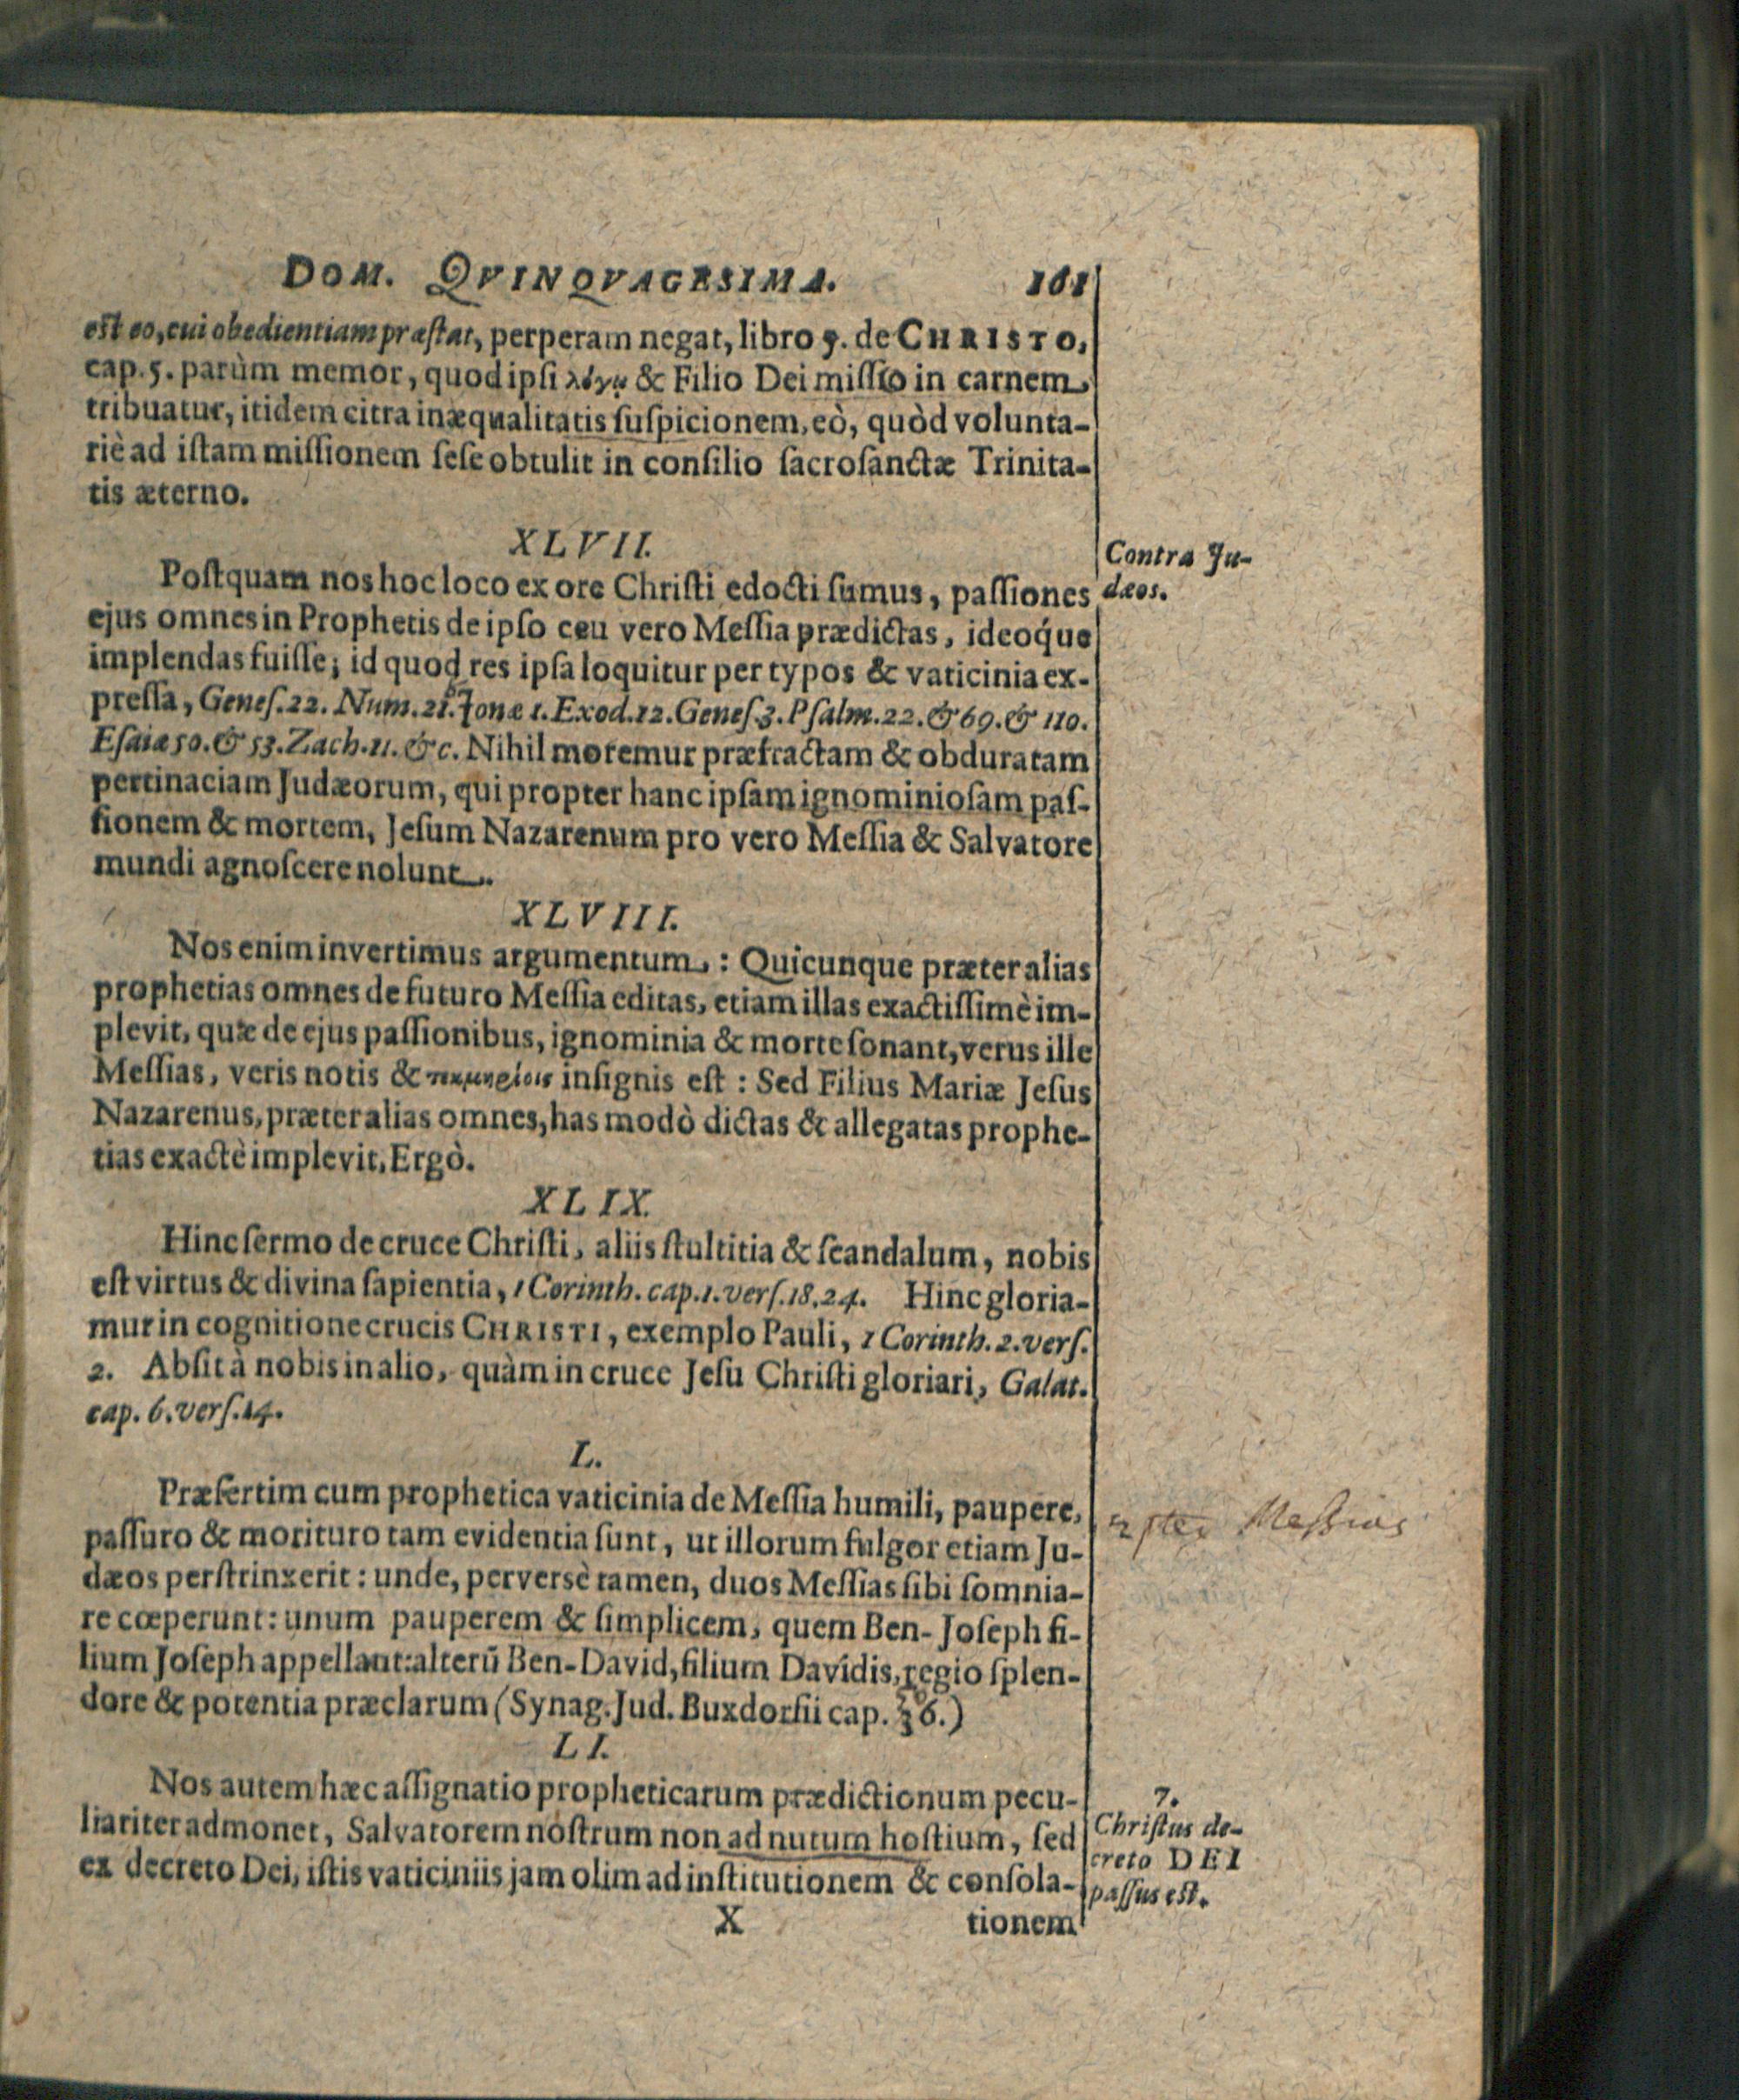 DOM. QVINQVAGESIMA. 161
est eo, cui obedientiam præſtat, perperam negat, libro 5. de CHRISTO,
cap. 5. parùm memor, quod ipſi λόγῳ & Filio Dei miſſio in carnem
tribuatur, itidem citra inæqualitatis ſuſpicionem, eò, quòd volunta-
riè ad iſtam miſſionem ſeſe obtulit in conſilio ſacroſanctæ Trinita-
tis æterno.
XLVII.
Contra Ju-
dæos.
Poſtquam nos hoc loco ex ore Chriſti edocti ſumus, paſſiones
ejus omnes in Prophetis de ipſo ceu vero Meſſia prædictas, ideoq́ue
implendas fuiſſe; id quod res ipſa loquitur per typos & vaticinia ex-
preſſa, Geneſ. 22. Num. 21. Jonæ 1. Exod. 12. Geneſ. 3. Pſalm. 22. & 69. & 110.
Eſaiæ 50. & 53. Zach. 11. &c. Nihil moremur præfractam & obduratam
pertinaciam Judæorum, qui propter hanc ipſam ignominioſam paſ-
ſionem & mortem, Jeſum Nazarenum pro vero Meſſia & Salvatore
mundi agnoſcere nolunt.
XLVIII.
Nos enim invertimus argumentum: Quicunque præter alias
prophetias omnes de futuro Meſſia editas, etiam illas exactiſſimè im-
plevit, quæ de ejus paſſionibus, ignominia & morte ſonant, verus ille
Meſſias, veris notis & τεκμηρίοις inſignis eſt: Sed Filius Mariæ Jeſus
Nazarenus, præter alias omnes, has modò dictas & allegatas prophe-
tias exactè implevit, Ergò.
XLIX.
Hinc ſermo de cruce Chriſti, aliis ſtultitia & ſcandalum, nobis
eſt virtus & divina ſapientia, 1 Corinth. cap. 1. verſ. 18. 24. Hinc gloria-
mur in cognitione crucis CHRISTI, exemplo Pauli, 1 Corinth. 2. verſ.
2. Abſit à nobis in alio, quàm in cruce Jeſu Chriſti gloriari, Galat.
cap. 6. verſ. 14.
L.
Præſertim cum prophetica vaticinia de Meſſia humili, paupere,
Meſſias
paſſuro & morituro tam evidentia ſunt, ut illorum fulgor etiam Ju-
dæos perſtrinxerit: unde, perversè tamen, duos Meſſias ſibi ſomnia-
re cœperunt: unum pauperem & ſimplicem, quem Ben-Joſeph fi-
lium Joſeph appellant: alterũ Ben-David, filium Davidis, regio ſplen-
dore & potentia præclarum (Synag. Jud. Buxdorfii cap. 36.)
LI.
Nos autem hæc aſſignatio propheticarum prædictionum pecu-
liariter admonet, Salvatorem noſtrum non ad nutum hoſtium, ſed
ex decreto Dei, iſtis vaticiniis jam olim ad inſtitutionem & conſola-
7.
Chriſtus de-
creto DEI
paſſus eſt.
X tionem